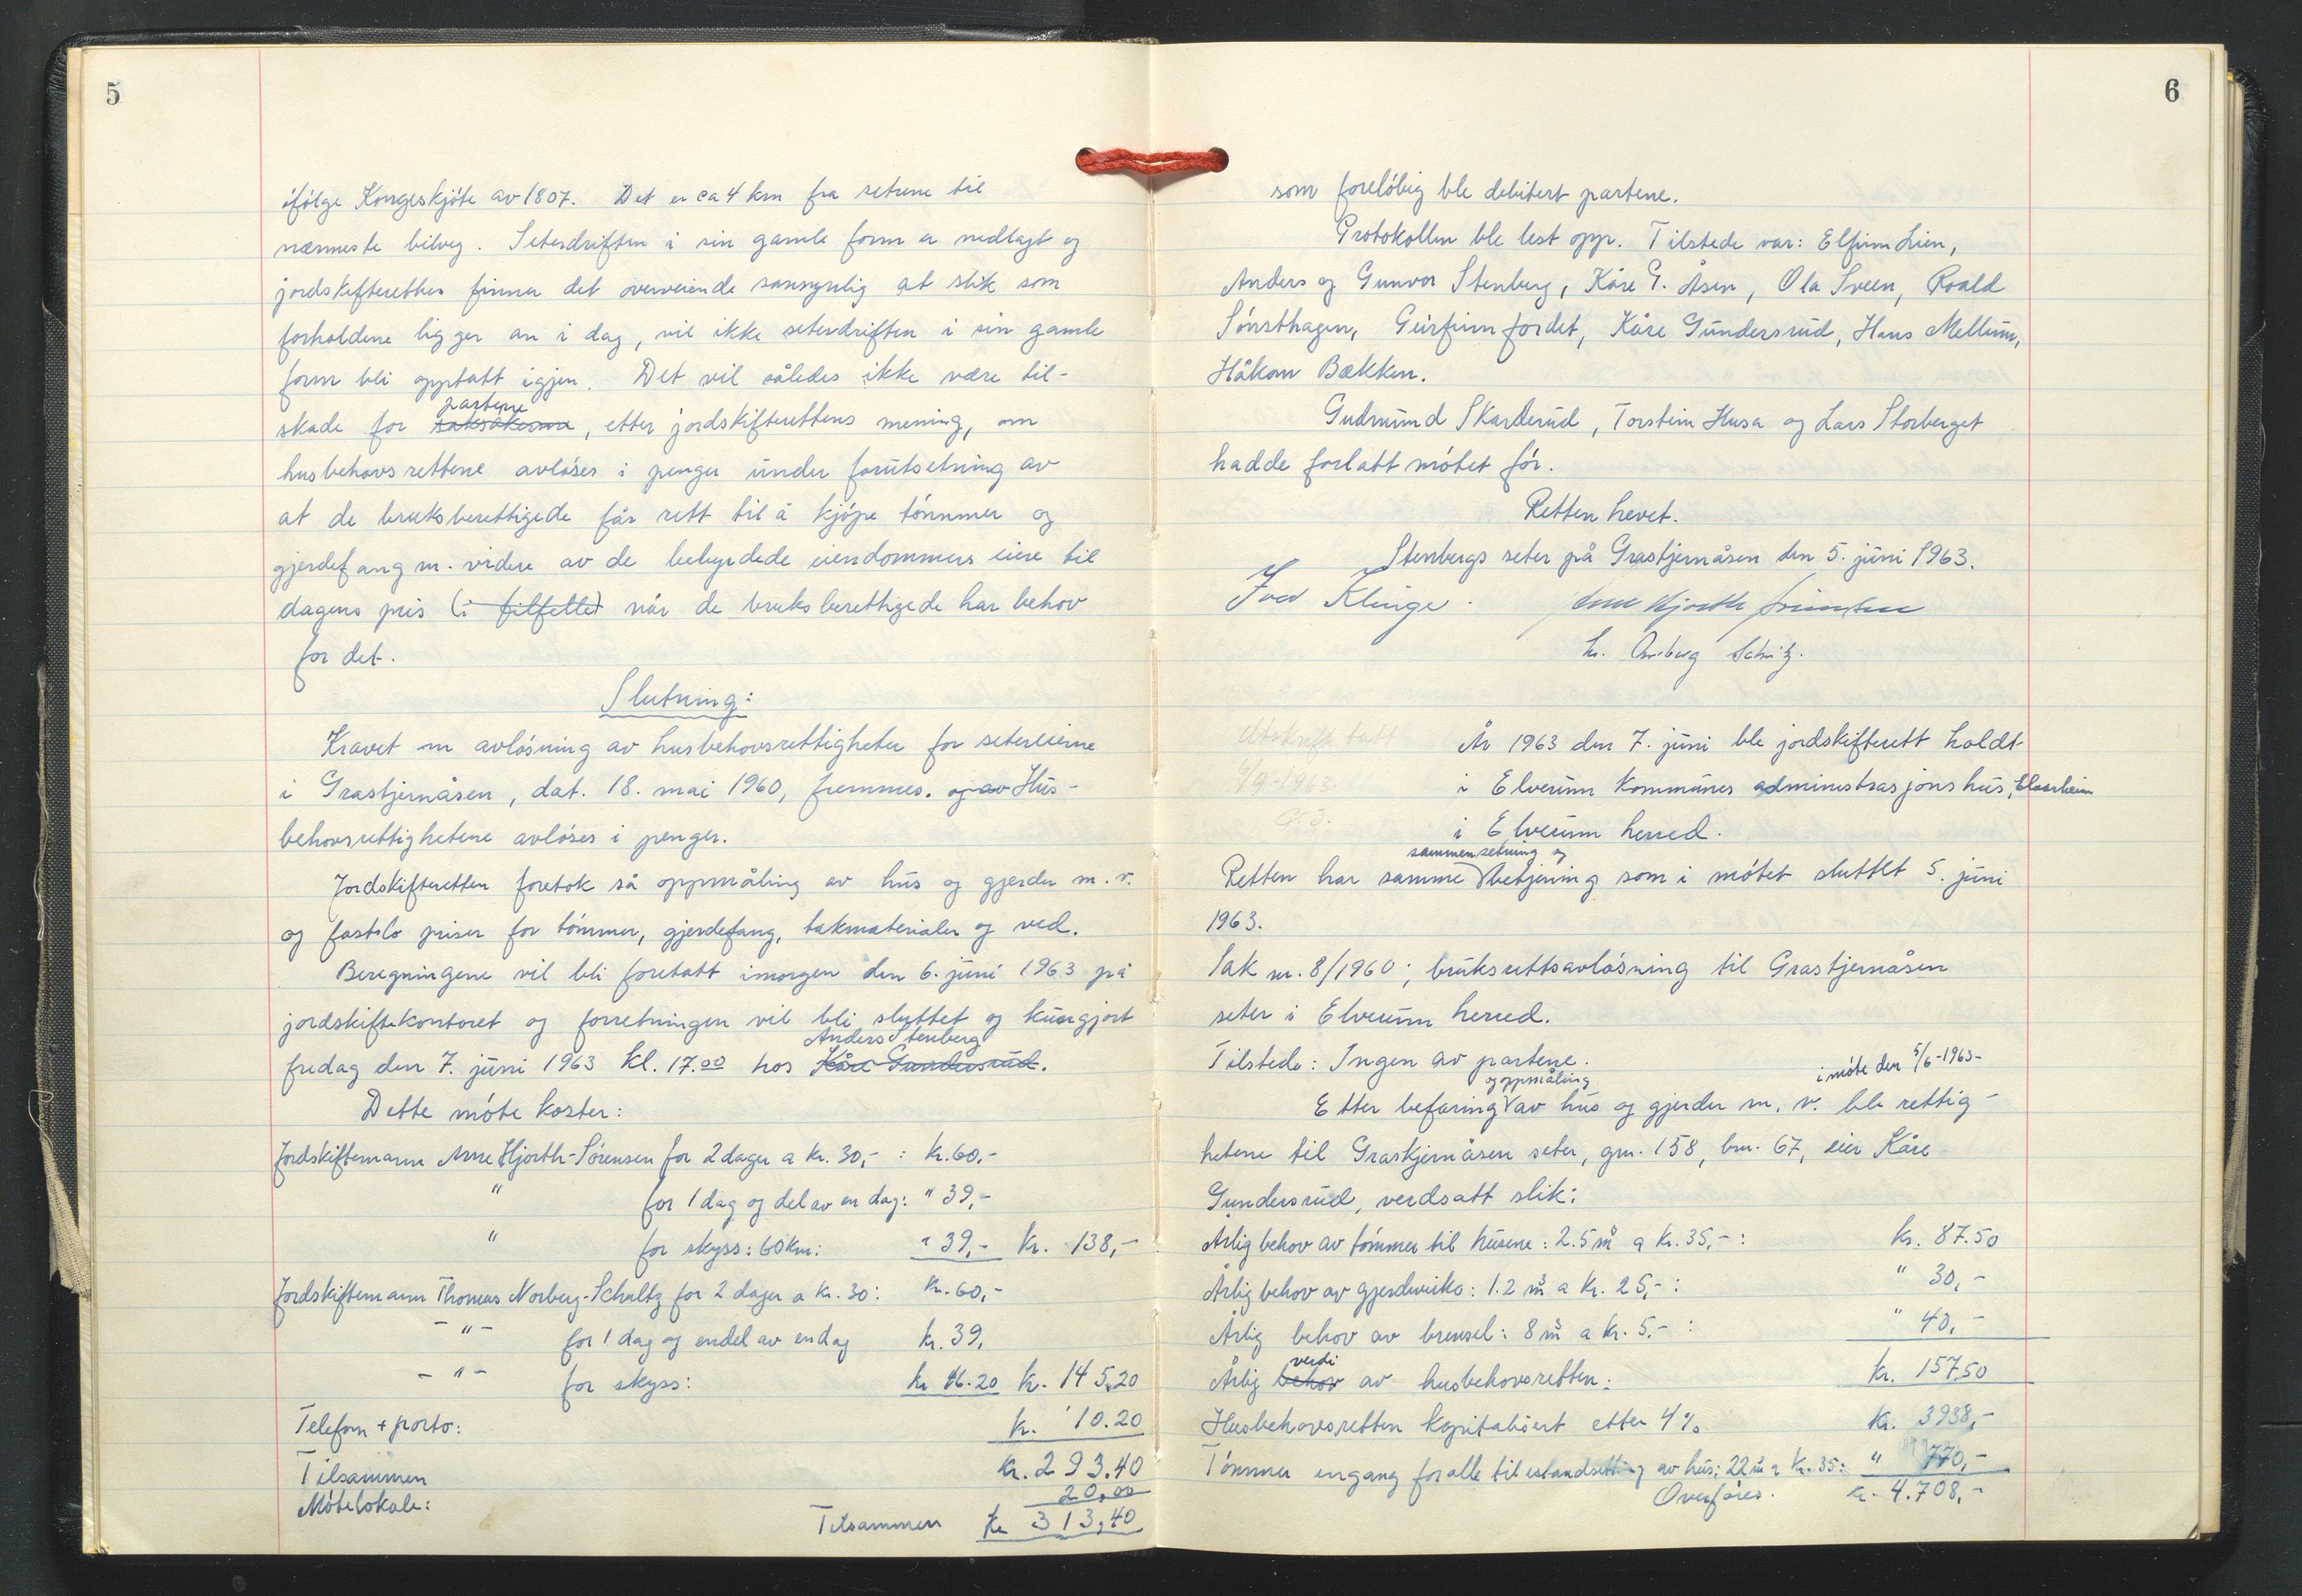 5
ifølge Kongeskjøte av 1807. Det er ca 4 km fra setrene til
nærmeste bilveg. Seterdriften i sin gamle form er nedlagt og
jordskifteretten finner det overveiende sannsynlig at slik som
forholdene ligger an i dag, vil ikke seterdriften i sin gamle
form bli opptatt igjen. Det vil således ikke være til-
partene
skade for saksøkerne, etter jordskifterettens mening, om
husbehovsrettene avløses i penger under forutsetning av
at de bruksberettigede får rett til å kjøpe tømmer og
gjerdefang m. videre av de bebyrdede eiendommers eiere til
dagens pris (i tilfelle) når de bruksberettigede har behov
for det.
Slutning:
Kravet om avløsning av husbehovsrettigheter for setereierne
i Grastjernåsen, dat. 18. mai 1960, fremmes. og av Hus-
behovsrettighetene avløses i penger.
Jordskifteretten foretok så oppmåling av hus og gjerder m.v.
og fastslo priser for tømmer, gjerdefang, takmaterialer og ved.
Beregningene vil bli foretatt imorgen den 6. juni 1963 på
jordskiftekontoret og forretningen vil bli sluttet og kungjort
Anders Stenberg
fredag den 7. juni 1963 kl. 17.00 hos Kåre Gundersrud.
Dette møte koster:
Jordskiftemann Arne Hjorth-Sørensen for 2 dager a kr. 30,- : kr. 60,-
" for 1 dag og del av en dag: " 39,-
" for skyss: 60 km: " 39,- kr. 138,-
Jordskiftemann Thomas Norberg-Schultz for 2 dager a kr. 30: kr. 60,-
-"- for 1 dag og endel av en dag kr. 39,
-"- for skyss: kr 46.20 kr. 145.20
Telefon + porto: kr. 10.20
Tilsammen kr. 293.40
Møtelokale: 20,00
Tilsammen kr 313,40
6
som foreløbig ble debitert partene.
Protokollen ble lest opp. Tilstede var: Elfinn Lien,
Anders og Gunvor Stenberg, Kåre G. Åsen, Ola Sveen, Roald
Sønsthagen, Geirfinn Jordet, Kåre Gundersrud, Hans Mellum,
Håkon Bækken.
Gudmund Skarderud, Torstein Husa og Lars Storberget
hadde forlatt møtet før.
Retten hevet.
Stenbergs seter på Grastjernåsen den 5. juni 1963.
Ivar Klinge. Arne Hjorth Sørensen
Th. Norberg Schultz.
Utskrift tatt
6/9-1963
År 1963 den 7. juni ble jordskifterett holdt
i Elverum kommunes administrasjonshus, Elvarheim
i Elverum herred.
sammensetning og
Retten har samme betjening som i møtet sluttet 5. juni
1963.
Sak nr. 8/1960; bruksrettsavløsning til Grastjernåsen
seter i Elverum herred.
Tilstede: Ingen av partene.
og oppmåling i møte den 5/6-1963-
Etter befaring av hus og gjerder m. v. ble rettig-
hetene til Grastjernåsen seter, gnr. 158, bnr. 67, eier Kåre
Gundersrud, verdsatt slik:
Årlig behov av tømmer til husene: 2.5 m³ a kr. 35,- : kr. 87.50
Årlig behov av gjerdevirke: 1.2 m³ a kr. 25,- : " 30,-
Årlig behov av brensel: 8 m³ a kr. 5,- : " 40,-
verdi
Årlig behov av husbehovsretten: kr. 157.50
Husbehovsretten kapitalisert etter 4% kr. 3938,-
Tømmer engang for alle til istandsetting av hus: 22 m³ a kr. 35: " 770,-
Overføres. kr. 4.708,-